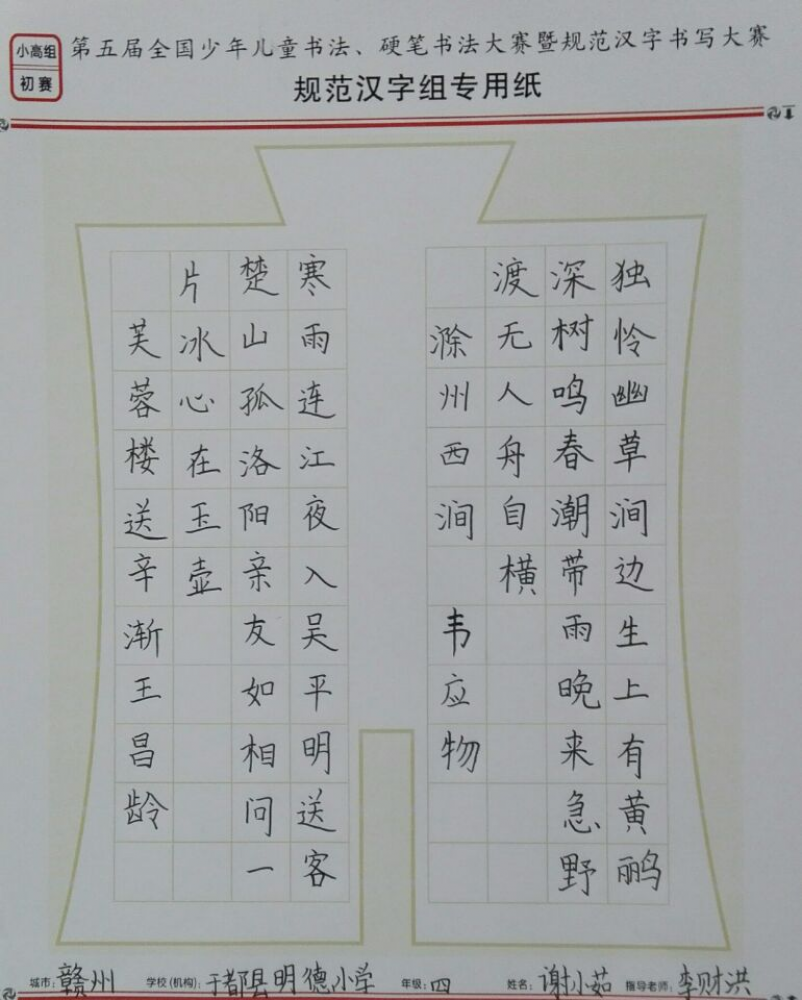 小高组
初赛
第五届全国少年儿童书法、硬笔书法大赛暨规范汉字书写大赛
规范汉字组专用纸
独怜幽草涧边生上有黄鹂
深树鸣春潮带雨晚来急野
渡无人舟自横
滁州西涧 韦应物
寒雨连江夜入吴平明送客
楚山孤洛阳亲友如相问一
片冰心在玉壶
芙蓉楼送辛渐王昌龄
城市：赣州 学校(机构)：于都县明德小学 年级：四 姓名：谢小茹 指导老师：李财洪